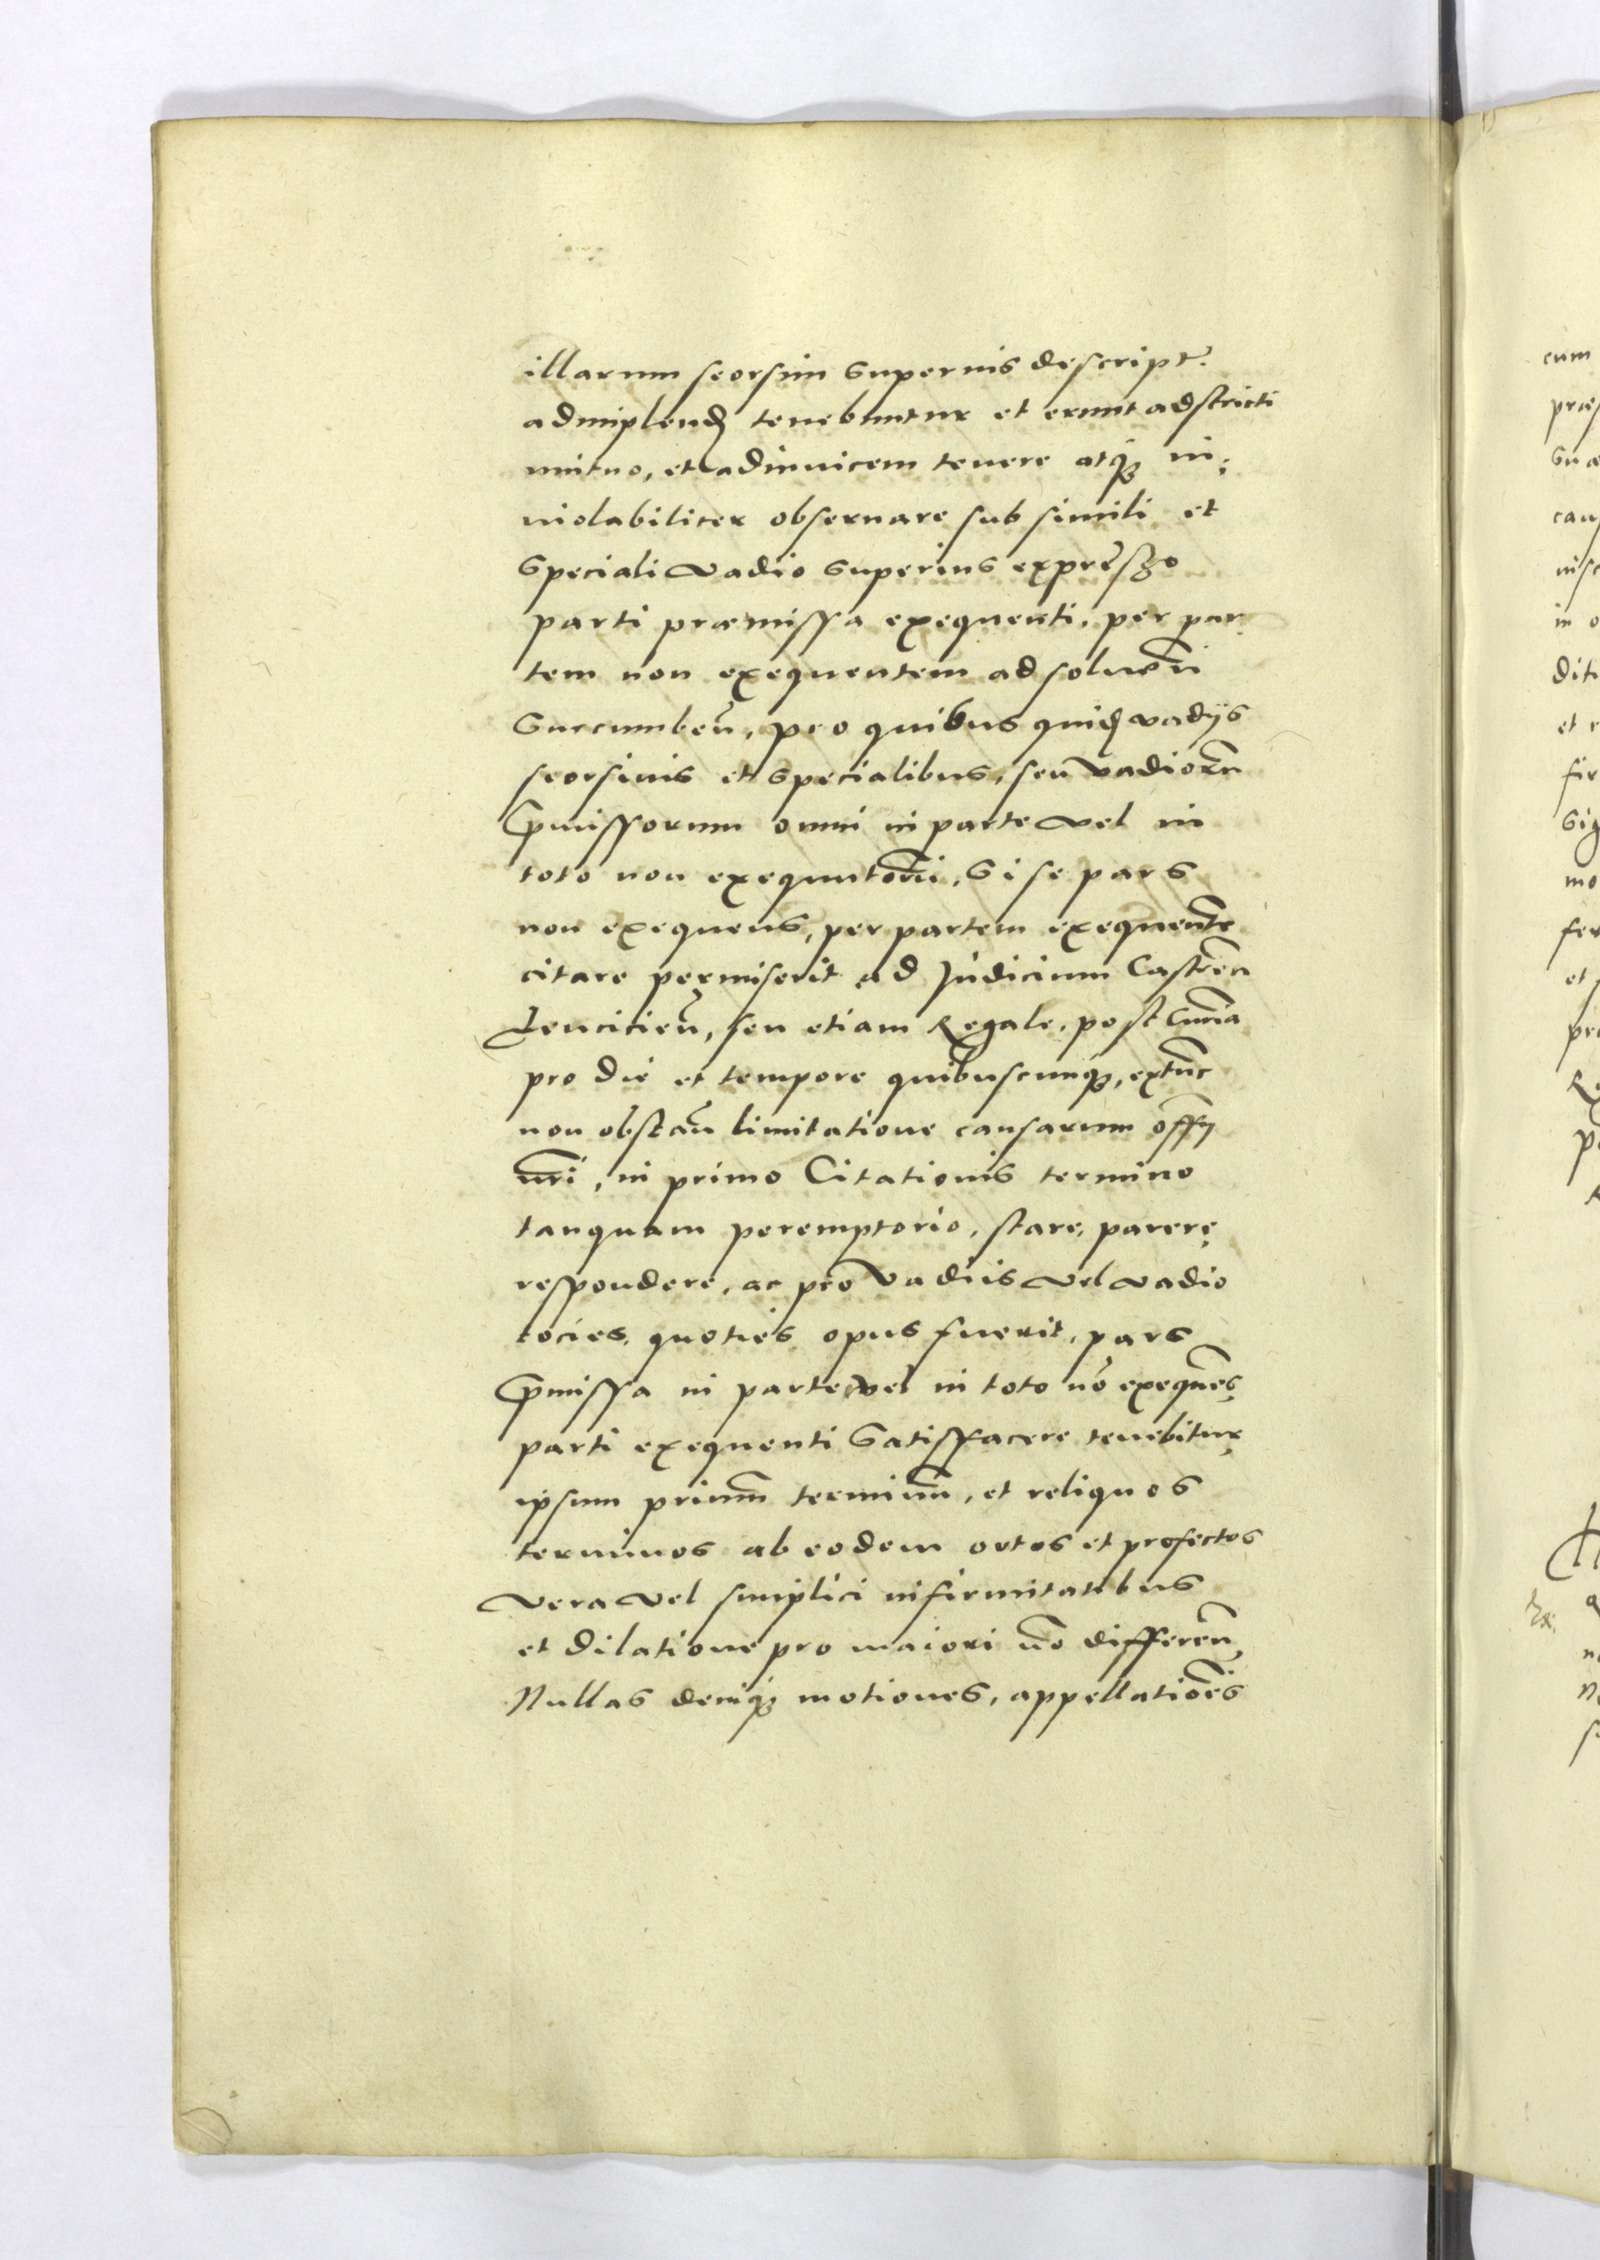 illarum seorsim supernis descript.
adimplend tenebuntur et erunt adstricti
mutuo, et adinuicem tenere atq in-
uiolabiliter obseruare sub simili et
speciali vadio superius expreszo
parti præmissa exequenti, per par
tem non exequentem ad soluen
succumben, pro quibus quid vadijs
seorsiuis et specialibus, seu vadioru
Pmissorum omni in parte vel in
toto non exequutorii, si se pars
non exequens, per partem exequente
citare permiserit ad Judicium Castren
Lencicien, seu etiam Regale, post Curia
pro die et tempore quibuscunq, extunc
non obstan limitatione causarum offy
nri, in primo Citationis termino
tanquam peremptorio, stare, parere
respondere, ac pro vadiis vel vadio
tocies, quoties opus fuerit, pars
Pmissa in parte vel in toto no exeques
parti exequenti Satisfacere tenebitur
ipsum primm terminm, et reliquos
terminos ab eodem ortos et profectos
vera vel simplici infirmitatibus
et dilatione pro maiori no differen
Nullas deniq motiones, appellationes
cum